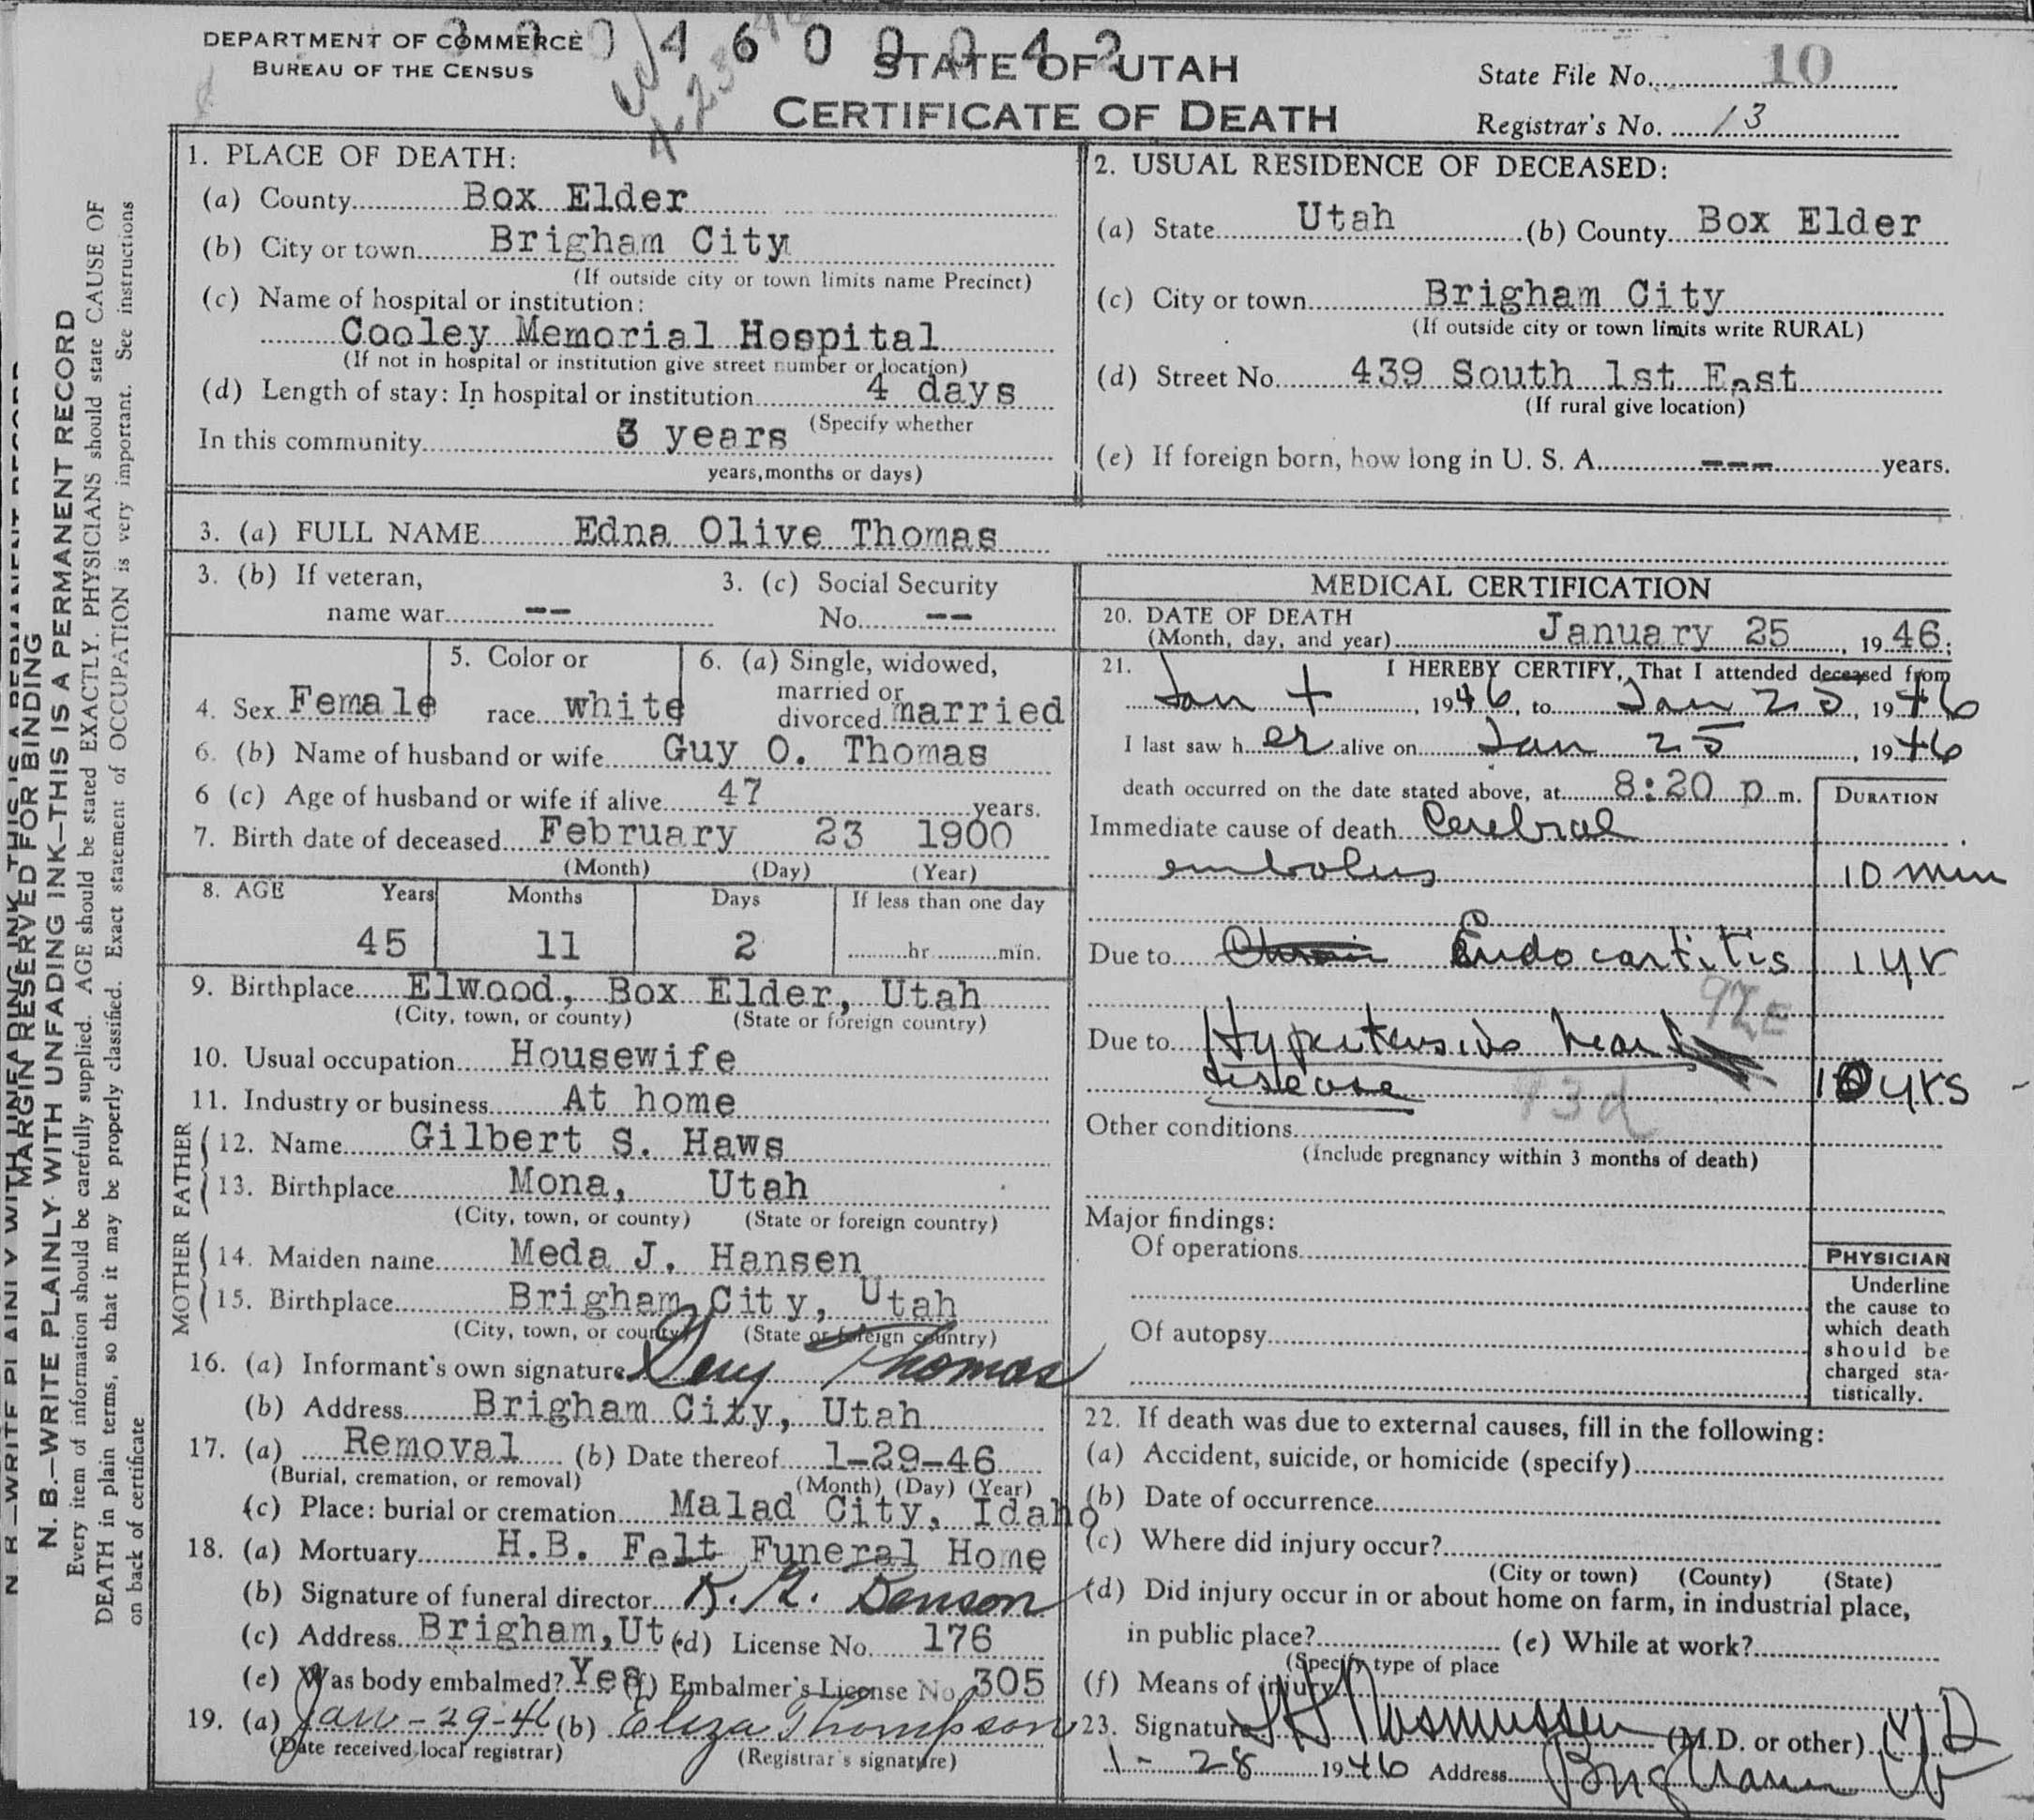 DEPARTMENT OF COMMERCE
BUREAU OF THE CENSUS
0 4 6 0 0 0 4 2
STATE OF UTAH
CERTIFICATE OF DEATH
State File No. 10
Registrar's No. 13
1. PLACE OF DEATH:
(a) County Box Elder
(b) City or town Brigham City
(If outside city or town limits name Precinct)
(c) Name of hospital or institution:
Cooley Memorial Hospital
(If not in hospital or institution give street number or location)
(d) Length of stay: In hospital or institution 4 days
(Specify whether
In this community 3 years
years, months or days)
2. USUAL RESIDENCE OF DECEASED:
(a) State Utah (b) County Box Elder
(c) City or town Brigham City
(If outside city or town limits write RURAL)
(d) Street No. 439 South 1st East
(If rural give location)
(e) If foreign born, how long in U. S. A. --- years.
3. (a) FULL NAME Edna Olive Thomas
3. (b) If veteran,
name war --
3. (c) Social Security
No. --
4. Sex Female
5. Color or
race white
6. (a) Single, widowed,
married or
divorced married
6. (b) Name of husband or wife Guy O. Thomas
6 (c) Age of husband or wife if alive 47 years.
7. Birth date of deceased February 23 1900
(Month) (Day) (Year)
8. AGE Years Months Days If less than one day
45 11 2 hr. min.
9. Birthplace Elwood, Box Elder, Utah
(City, town, or county) (State or foreign country)
10. Usual occupation Housewife
11. Industry or business At home
FATHER
12. Name Gilbert S. Haws
13. Birthplace Mona, Utah
(City, town, or county) (State or foreign country)
MOTHER
14. Maiden name Meda J. Hansen
15. Birthplace Brigham City, Utah
(City, town, or county) (State or foreign country)
16. (a) Informant's own signature Guy Thomas
(b) Address Brigham City, Utah
17. (a) Removal (b) Date thereof 1-29-46
(Burial, cremation, or removal) (Month) (Day) (Year)
(c) Place: burial or cremation Malad City, Idaho
18. (a) Mortuary H.B. Felt Funeral Home
(b) Signature of funeral director Benson
(c) Address Brigham, Ut. (d) License No. 176
(e) Was body embalmed? Yes (f) Embalmer's License No. 305
19. (a) Jan-29-46 (b) Eliza Thompson
(Date received local registrar) (Registrar's signature)
MEDICAL CERTIFICATION
20. DATE OF DEATH
(Month, day, and year) January 25, 1946.
21. I HEREBY CERTIFY, That I attended deceased from
Jan 4, 1946, to Jan 25, 1946
I last saw her alive on Jan 25, 1946
death occurred on the date stated above, at 8:20 p m.
DURATION
Immediate cause of death Cerebral
embolus 10 min
Due to Endocartitis 1 yr
92E
Due to Hypertensive heart
disease 10 yrs
93d
Other conditions
(Include pregnancy within 3 months of death)
Major findings:
Of operations
Of autopsy
PHYSICIAN
Underline
the cause to
which death
should be
charged sta-
tistically.
22. If death was due to external causes, fill in the following:
(a) Accident, suicide, or homicide (specify)
(b) Date of occurrence
(c) Where did injury occur?
(City or town) (County) (State)
(d) Did injury occur in or about home on farm, in industrial place,
in public place? (e) While at work?
(Specify type of place
(f) Means of injury
23. Signature Rasmussen (M.D. or other) MD
1-28 1946 Address Brigham Ut
MARGIN RESERVED FOR BINDING
N. B.—WRITE PLAINLY WITH UNFADING INK—THIS IS A PERMANENT RECORD
Every item of information should be carefully supplied. AGE should be stated EXACTLY. PHYSICIANS should state CAUSE OF
DEATH in plain terms, so that it may be properly classified. Exact statement of OCCUPATION is very important. See instructions
on back of certificate